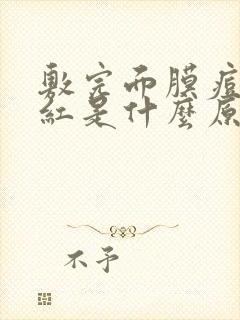 敷完面膜痘
紅是什麼原
不予